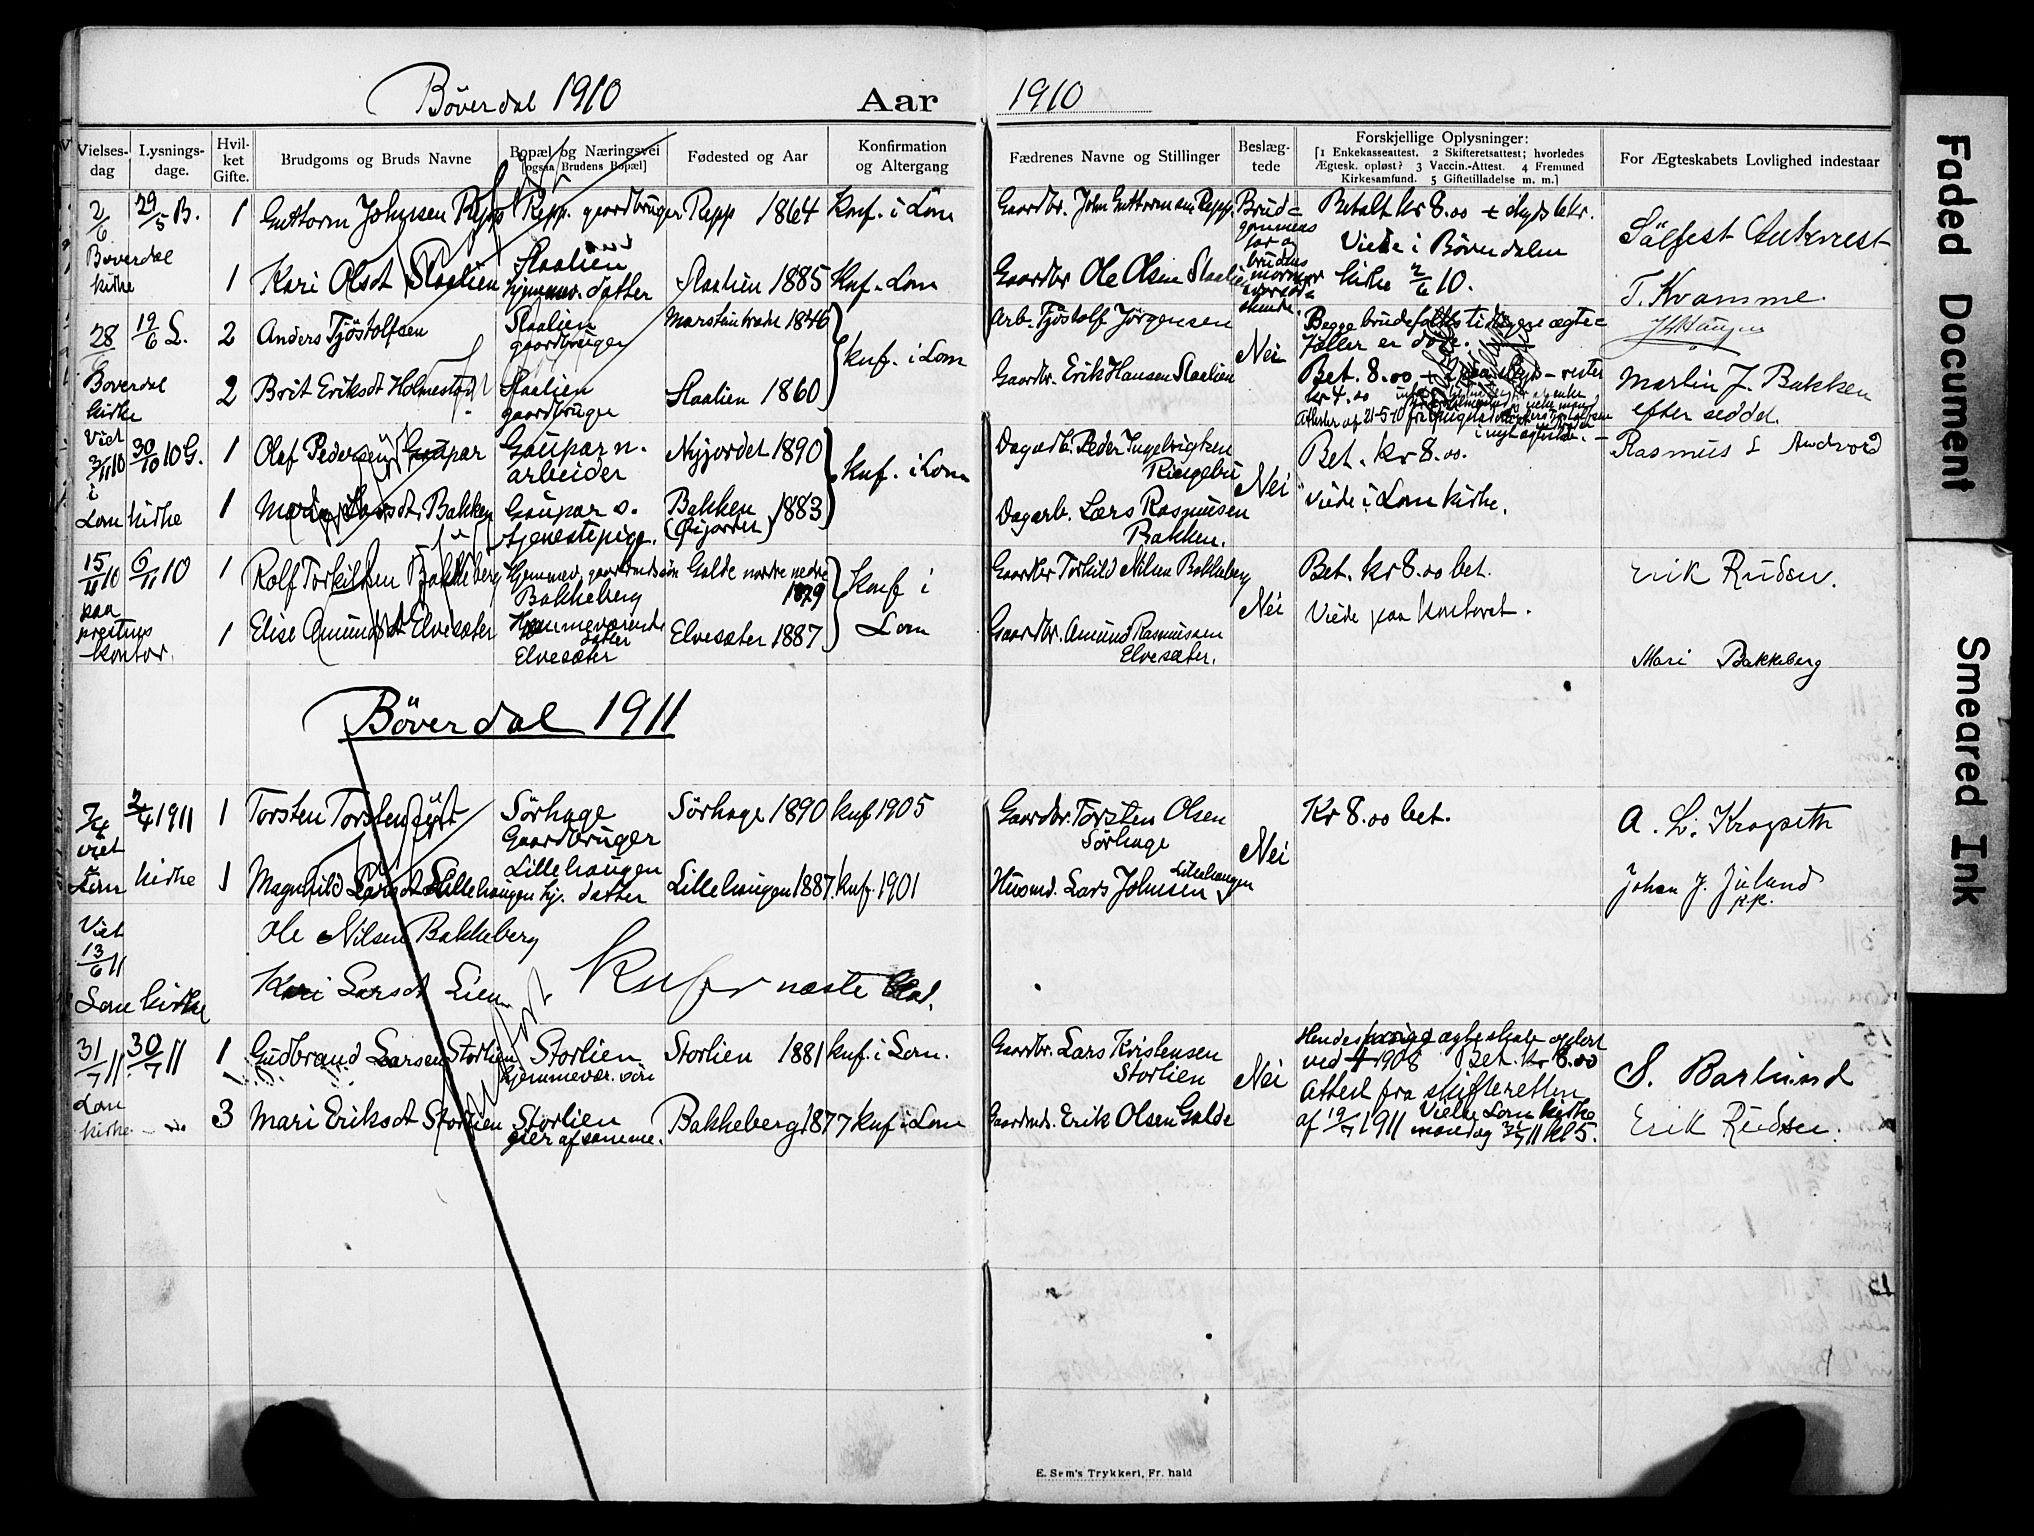 Böverdal 1910 Aar 1910
Vielses-dag Lysnings-dage. Hvil-ket Gifte. Brudgoms og Bruds Navne Bopæl og Næringsvei [ogsaa Brudens Bopæl] Fødested og Aar Konfirmation og Altergang Fædrenes Navne og Stillinger Beslæg-tede Forskjellige Oplysninger: [1 Enkekasseattest. 2 Skifteretsattest; hvorledes Ægtesk. opløst? 3 Vaccin.-Attest. 4 Fremmed Kirkesamfund. 5 Giftetilladelse m. m.] For Ægteskabets Lovlighed indestaar
2/6 29/5 B. 1 Guttorm Johnsen Repp Repp. gaardbruger Repp 1864 Konf. i Lom Gaardbr. John Guttormsen Repp. Brud=
gommens far og brudens mormor
Betalt kr 8.00
Viede i Böverdalen
kirke 2/6 10.
Sålfest Aukrust
Böverdal
kirke 1 Kari Olsdt Slaalien Slaalien
hjemmev. datter Slaalien 1885 Knf. Lom Gaardbr Ole Olsen Slaalien
T. Kvamme.
28/6 19/6 L. 2 Anders Tjöstolfsen Slaalien
gaardbruger 1846 knf. i Lom Arb. Tjöstolf Jörgensen Nei Begge brudefolks tidligere ægte=
fæller er döde.
Böverdal
kirke 2 Brit Eriksdt Holmestad Slaalien
gaardbruger Slaalien 1860 Gaardbr. Erik Hansen Slaalien Bet. 8.00
Martin J. Bakken
efter seddel
Viet
3/11 10 30/10 10 G. 1 Olaf Pedersen Gaupar Gaupar n.
arbeider Nyjordet 1890 knf. i Lom Dagarb. Peder Ingebrigtsen
Ringebu Nei Bet. kr 8.00.
Rasmus L Andvord
i
Lom kirke 1 Bakken Gaupar s.
tjenestepige. Bakken 1883 Dagarb. Lars Rasmussen
Bakken. Viede i Lom kirke.
15/11 10 6/11 10 1 Rolf Torkildsen Bakkeberg Hjemmev. gaardmdssön
Bakkeberg Galde nordre nedre
1879 Konf i
Lom Gaardbr Torkild Nilsen Bakkeberg Nei Bet. kr 8.00 bet.
Erik Rudsen.
paa
prestens
kontor. 1 Elise Amundsdt Elvesæter Hjemmeværende
datter
Elvesæter Elvesæter 1887 Gaardbr. Amund Rasmussen
Elvesæter. Viede paa kontoret.
Mari Bakkeberg
Böverdal 1911
7/4 2/4 1911 1 Torsten Torstensen Sörhage
Gaardbruger Sörhage 1890 knf 1905 Gaardbr. Torsten Olsen
Sörhage Nei Kr 8.00 bet. A. L. Kragseth
viet
Lom kirke 1 Magnhild Larsdt Lillehaugen Lillehaugen
hj. datter Lillehaugen 1887. knf. 1901 Husmd. Lars Johnsen Lillehaugen
Johan J. Juland
p.k.
Viet
13/6 11 Ole Nilsen Bakkeberg
Lom kirke Kari Larsdt Lien næste blad.
31/7 11 30/7 11 1 Gudbrand Larsen Storlien Storlien
hjemmevær. sön Storlien 1881 knf. i Lom. Gaardbr. Lars Kristensen
Storlien Nei Hendes forrige ægteskab oplöst
ved 1908 Bet. kr 8.00
Attest fra skifteretten
af 19/7 1911 Vielse Lom kirke
mandag 31/7 11 kl 5.
S. Barlund
Lom
kirke 3 Mari Eriksdt Storlien Storlien
eier af samme. Bakkeberg 1877 knf i Lom Gaardmd. Erik Olsen Galde
Erik Rudsen.
E. Sem's Trykkeri, Fr. hald
Faded Document
Smeared Ink